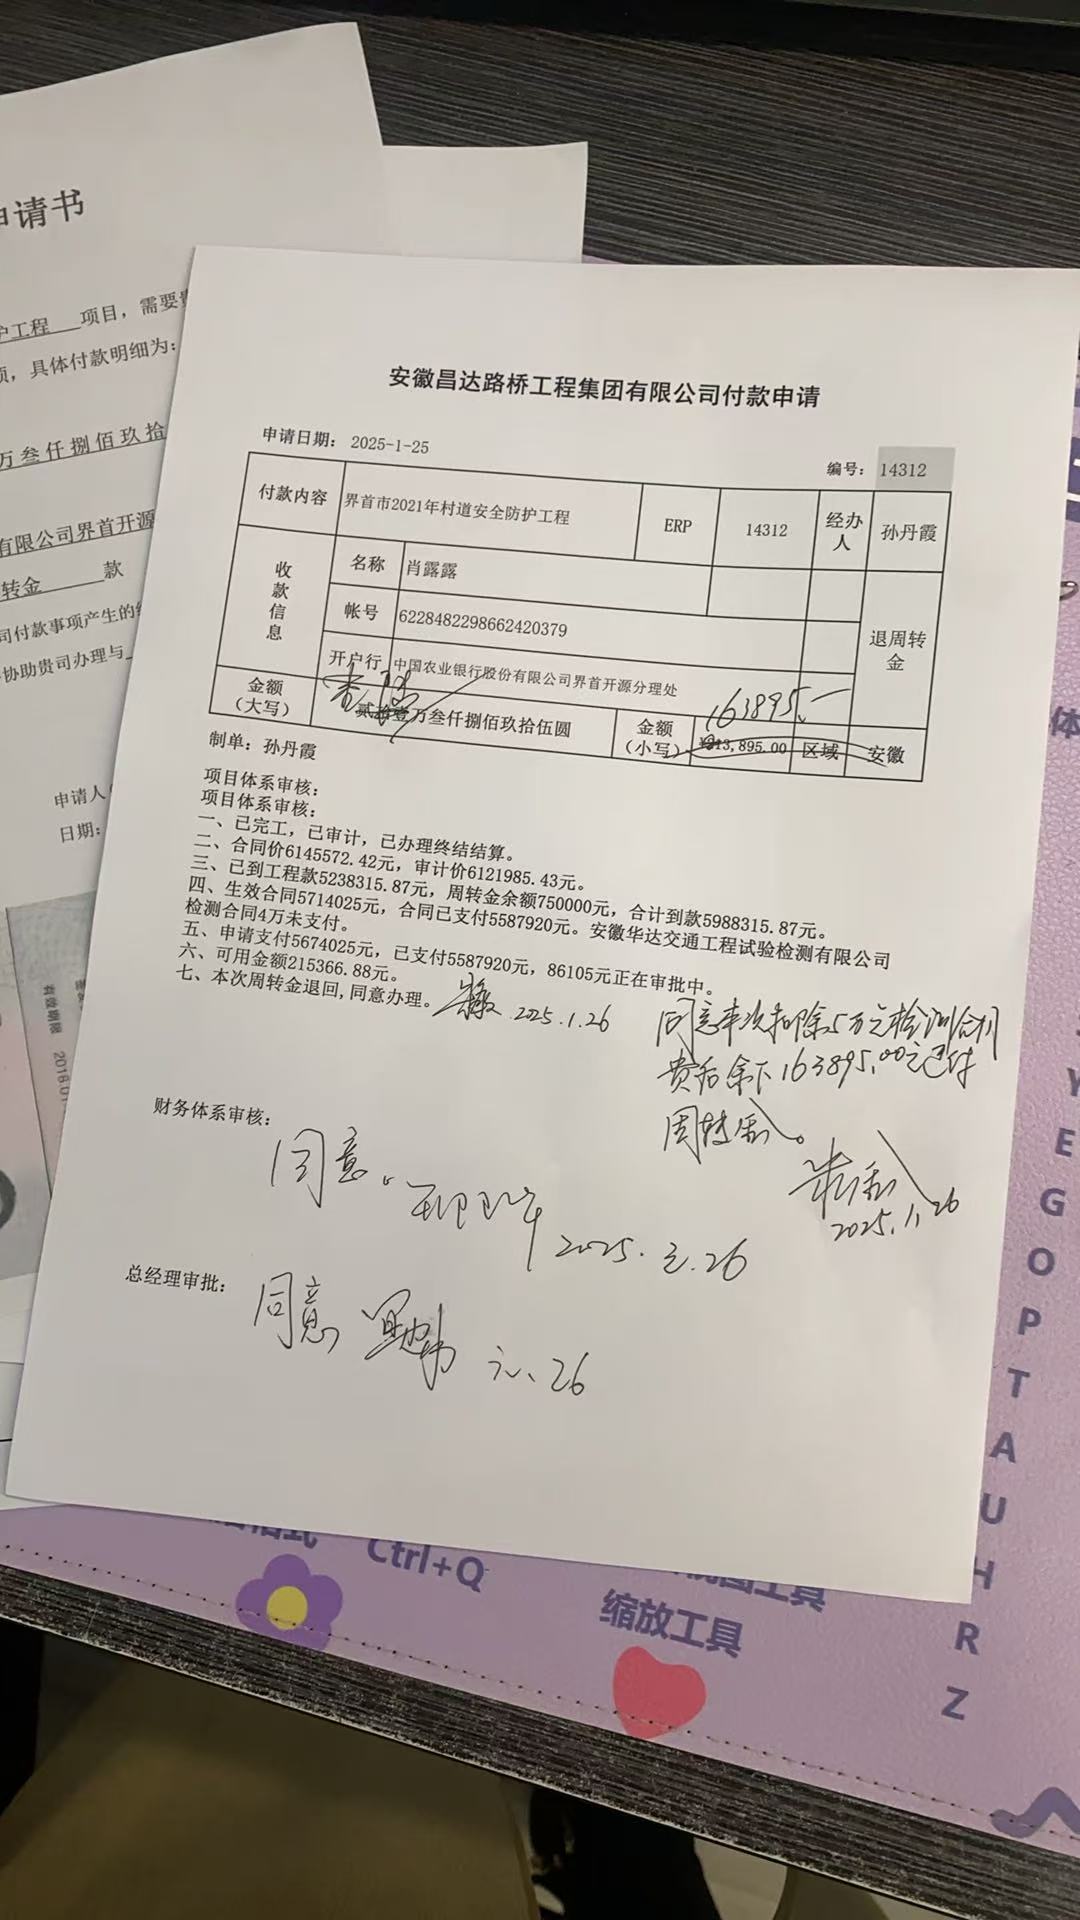 申请书
护工程 项目，需要
项，具体付款明细为：
万叁仟捌佰玖拾
有限公司界首开源
转金 款
司付款事项产生的
协助贵司办理与
申请人
日期：
有效期限 2016.01
安徽昌达路桥工程集团有限公司付款申请
申请日期： 2025-1-25
编号： 14312
付款内容 界首市2021年村道安全防护工程 ERP 14312 经办人 孙丹霞
收款信息 名称 肖露露
帐号 6228482298662420379
退周转金
开户行 中国农业银行股份有限公司界首开源分理处
163895.—
金额（大写） 贰拾壹万叁仟捌佰玖拾伍圆 金额（小写） ¥213,895.00 区域 安徽
制单：孙丹霞
项目体系审核：
项目体系审核：
一、已完工，已审计，已办理终结结算。
二、合同价6145572.42元，审计价6121985.43元。
三、已到工程款5238315.87元，周转金余额750000元，合计到款5988315.87元。
四、生效合同5714025元，合同已支付5587920元。安徽华达交通工程试验检测有限公司
检测合同4万未支付。
五、申请支付5674025元，已支付5587920元，86105元正在审批中。
六、可用金额215366.88元。
七、本次周转金退回,同意办理。 2025.1.26
同意本次扣除5万元检测合同
费后余下163895.00元已付
周转金。
2025.1.26
财务体系审核：
同意。
2025.元.26
总经理审批：
同意 元.26
Ctrl+Q
缩放工具
体
Y
E
G
O
P
T
A
U
H
R
Z